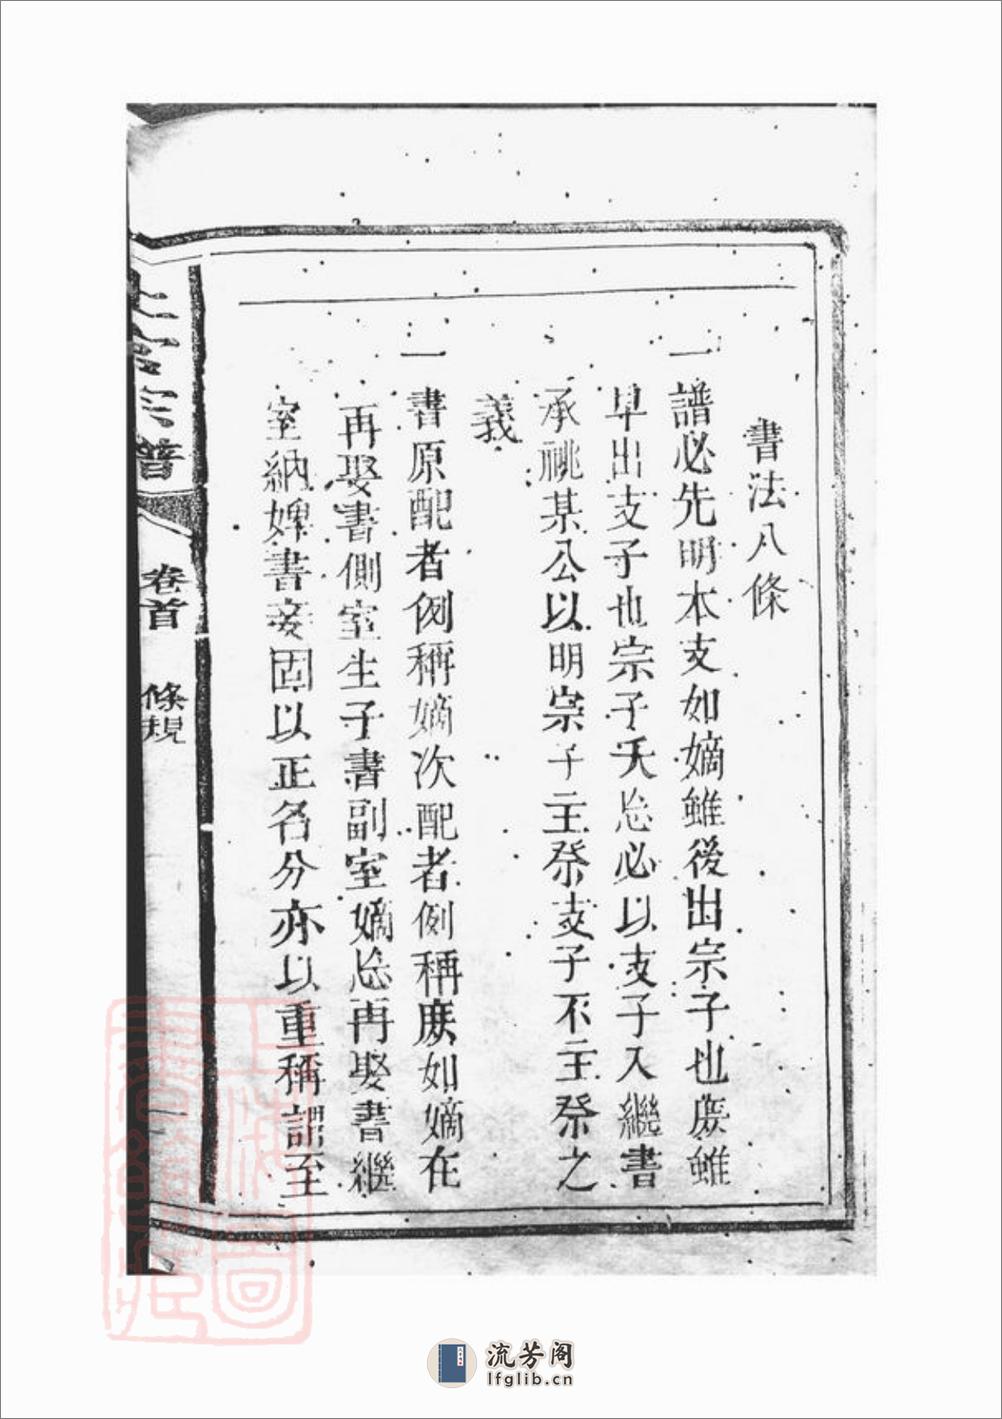 書法八條
一譜必先明本支如嫡雖後出宗子也庶雖
早出支子也宗子夭𢗅必以支子入繼書
承祧某公以明宗子主祭支子不主祭之
義
一書原配者例稱嫡次配者例稱庶如嫡在
再娶書側室生子書副室嫡𢗅再娶書繼
室納婢書妾固以正名分亦以重稱謂至
宗譜
卷首
條規
一
流芳阁
lfglib.cn